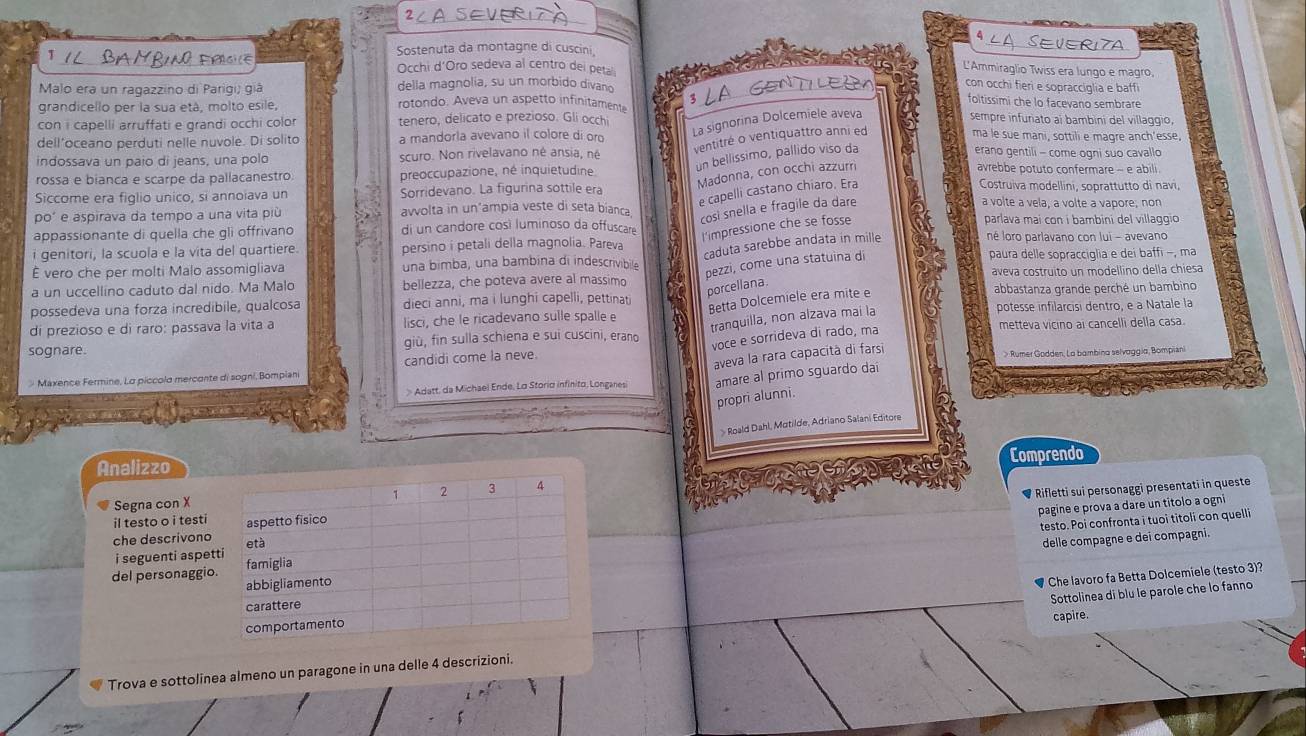 1 IL BAMBINO FRAGILE
Malo era un ragazzino di Parigi; già
grandicello per la sua età, molto esile,
con i capelli arruffati e grandi occhi color
dell'oceano perduti nelle nuvole. Di solito
indossava un paio di jeans, una polo
rossa e bianca e scarpe da pallacanestro.
Siccome era figlio unico, si annoiava un
po' e aspirava da tempo a una vita più
appassionante di quella che gli offrivano
i genitori, la scuola e la vita del quartiere.
È vero che per molti Malo assomigliava
a un uccellino caduto dal nido. Ma Malo
possedeva una forza incredibile, qualcosa
di prezioso e di raro: passava la vita a
sognare.
> Maxence Fermine, La piccola mercante di sogni, Bompiani
2 LA SEVERITÀ
Sostenuta da montagne di cuscini,
Occhi d'Oro sedeva al centro dei petali
della magnolia, su un morbido divano
rotondo. Aveva un aspetto infinitamente
tenero, delicato e prezioso. Gli occhi
a mandorla avevano il colore di oro
scuro. Non rivelavano né ansia, né
preoccupazione, né inquietudine.
Sorridevano. La figurina sottile era
avvolta in un'ampia veste di seta bianca,
di un candore così luminoso da offuscare
persino i petali della magnolia. Pareva
una bimba, una bambina di indescrivibile
bellezza, che poteva avere al massimo
dieci anni, ma i lunghi capelli, pettinati
lisci, che le ricadevano sulle spalle e
giù, fin sulla schiena e sui cuscini, erano
candidi come la neve.
> Adatt. da Michael Ende, La Storia infinita, Longanesi
3 LA GENTILEZZA
La signorina Dolcemiele aveva
ventitré o ventiquattro anni ed
un bellissimo, pallido viso da
Madonna, con occhi azzurri
e capelli castano chiaro. Era
così snella e fragile da dare
l'impressione che se fosse
caduta sarebbe andata in mille
pezzi, come una statuina di
porcellana.
Betta Dolcemiele era mite e
tranquilla, non alzava mai la
voce e sorrideva di rado, ma
aveva la rara capacità di farsi
amare al primo sguardo dai
propri alunni.
> Roald Dahl, Matilde, Adriano Salani Editore
4 LA SEVERITA
L'Ammiraglio Twiss era lungo e magro,
con occhi fieri e sopracciglia e baffi
foltissimi che lo facevano sembrare
sempre infuriato ai bambini del villaggio,
ma le sue mani, sottili e magre anch'esse,
erano gentili – come ogni suo cavallo
avrebbe potuto confermare – e abili.
Costruiva modellini, soprattutto di navi,
a volte a vela, a volte a vapore; non
parlava mai con i bambini del villaggio
né loro parlavano con lui – avevano
paura delle sopracciglia e dei baffi –, ma
aveva costruito un modellino della chiesa
abbastanza grande perché un bambino
potesse infilarcisi dentro, e a Natale la
metteva vicino ai cancelli della casa.
> Rumer Godden, La bambina selvaggia, Bompiani
Analizzo
Segna con X
il testo o i testi
che descrivono
i seguenti aspetti
del personaggio.
1 2 3 4
aspetto fisico
età
famiglia
abbigliamento
carattere
comportamento
Trova e sottolinea almeno un paragone in una delle 4 descrizioni.
Comprendo
Rifletti sui personaggi presentati in queste
pagine e prova a dare un titolo a ogni
testo. Poi confronta i tuoi titoli con quelli
delle compagne e dei compagni.
Che lavoro fa Betta Dolcemiele (testo 3)?
Sottolinea di blu le parole che lo fanno
capire.